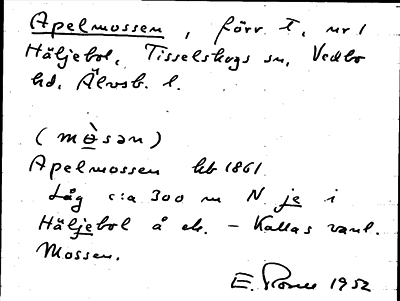 Apelmossen, förr T. nr 1
Häljebol, Tisselskogs sn, Vedbo
hd, Älvsb. l.
(mɵ̀sən)
Apelmossen hb 1861.
Låg c:a 300 m N je i
Häljebol å ek. – Kallas vanl.
Mossen.
E. 1952